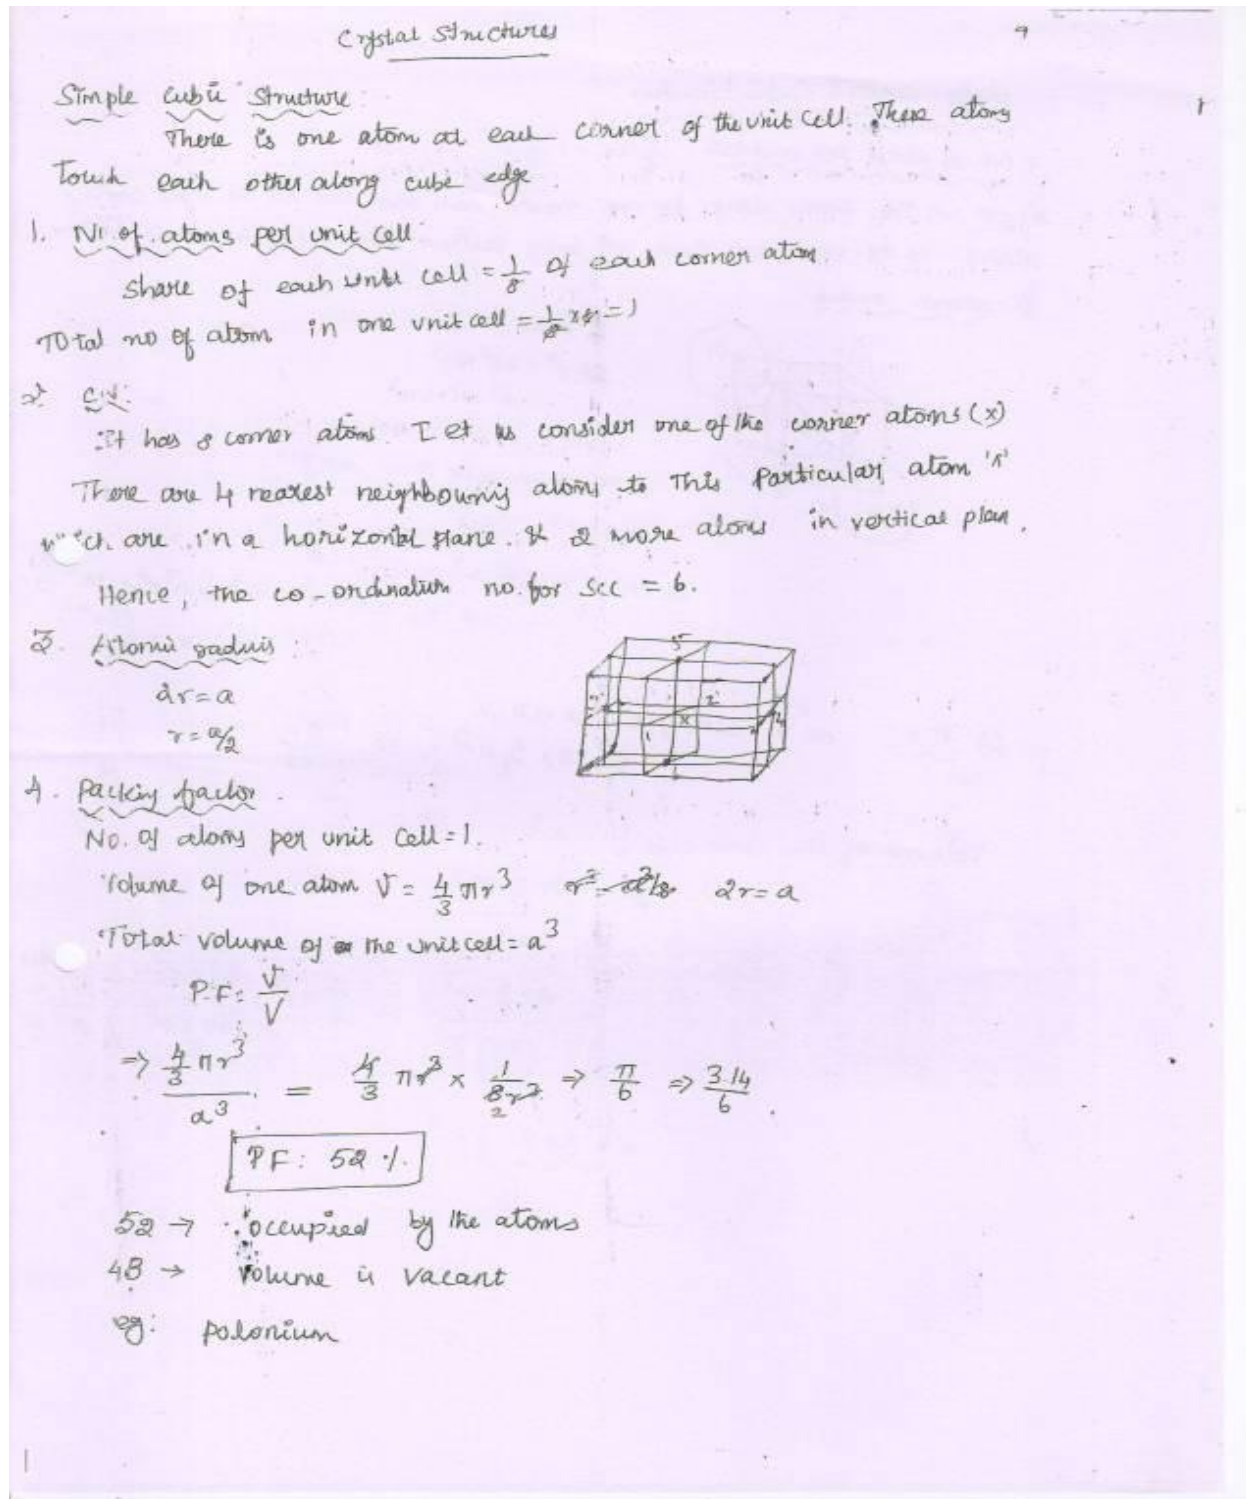 Crystal Structures
Simple Cubic Structure
There is one atom at each corner of the unit cell. These atoms
Touch each other along cube edge.
1. No. of atoms per unit cell:
Share of each unit cell = 1/8 of each corner atom.
Total no of atom in one unit cell = 1/8 x 8 = 1
2. C.N:
It has 8 corner atoms. Let us consider one of the corner atoms (x)
There are 4 nearest neighbouring atoms to This Particular atom 'x'
which are in a horizontal plane. & 2 more atoms in vertical plan.
Hence, the co-ordination no. for SCC = 6.
3. Atomic radius:
2r = a
r = a/2
5
2
x
1
4. Packing factor.
No. of atoms per unit cell = 1.
Volume of one atom V = 4/3 πr³ 2r = a
Total volume of the unit cell = a³
P.F: V/V
⇒ 4/3 πr³ / a³ = 4/3 πr³ × 1/8r³ ⇒ π/6 ⇒ 3.14/6
PF: 52 %.
52 → occupied by the atoms
48 → Volume is vacant
eg: polonium